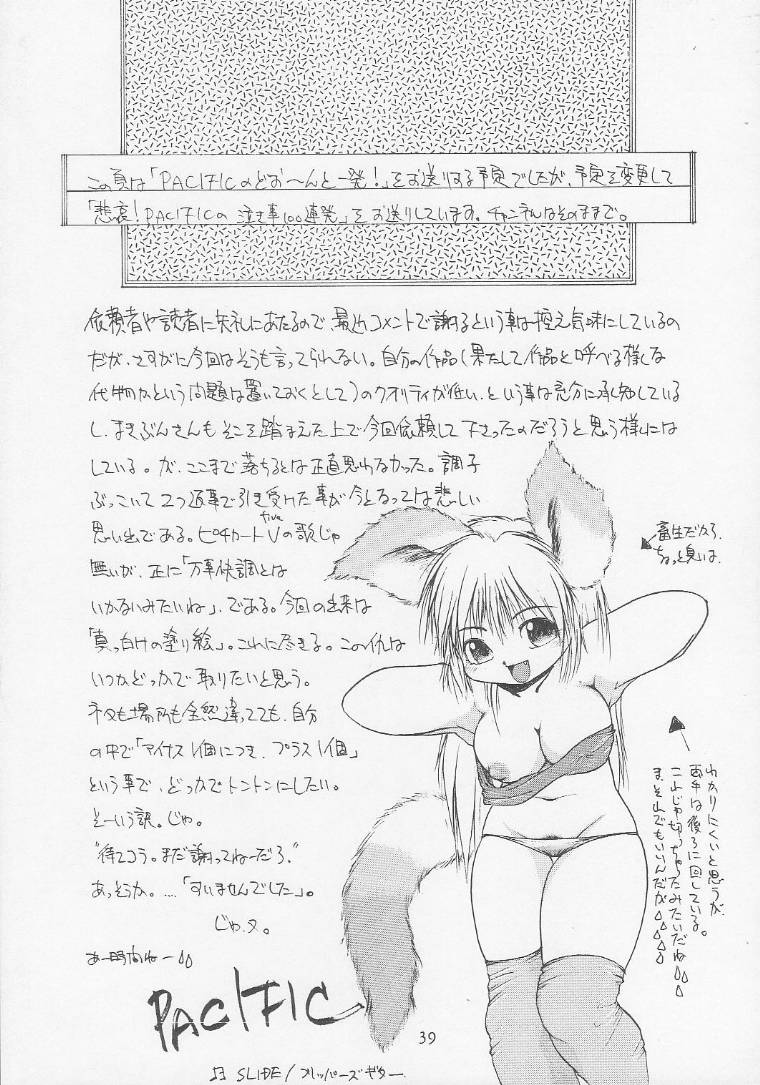 この頁は「PACIFICのどお〜んと一発！」をお送りする予定でしたが、予定を変更して
「悲哀！PACIFICの泣き事100連発」をお送りしています。チャンネルはそのままで。
依頼者や読者に失礼にあたるので、最近コメントで謝るという事は控え気味にしているの
だが、さすがに今回はそうも言ってられない。自分の作品（果たして作品と呼べる様な
代物かという問題は置いておくとして）のクオリティが低い、という事は充分に承知している
し、まきぶんさんもそこを踏まえた上で今回依頼して下さったのだろうと思う様には
している。が、ここまで落ちるとは正直思わなかった。調子
ぶっこいて2つ返事で引き受けた事が今となっては悲しい
思い出である。ピチカートV(five)の歌じゃ
無いが、正に「万事快調とは
いかないみたいね」、である。今回の出来は
「真っ白けの塗り絵」。これに尽きる。この仇は
いつかどっかで取りたいと思う。
ネタも場所も全然違ってても、自分
の中で「マイナス1個につき、プラス1個」
という事で、どっかでトントンにしたい。
そーいう訳。じゃ。
"待てコラ。まだ謝ってねーだろ"
あっそうか。…「すいませんでした」。
じゃ、又。
あー時間ねー
PACIFIC
畜生だから
ちょっと臭いは、
わかりにくいと思うが、
両手は後ろに回している。
これじゃ切っちゃったみたいだね
ま、それでもいいんだが
39
♫ SLIDE/フリッパーズギター